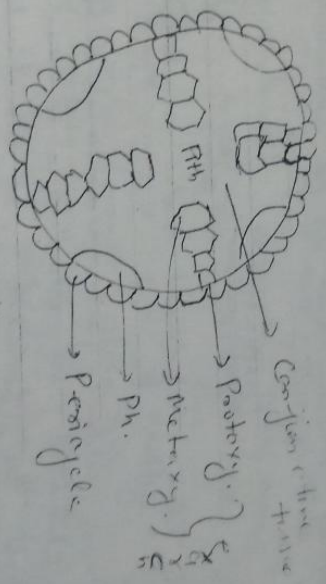 Pith
Conjunctive
tissue
Protoxy.
Metaxy.
Ph.
Pericycle